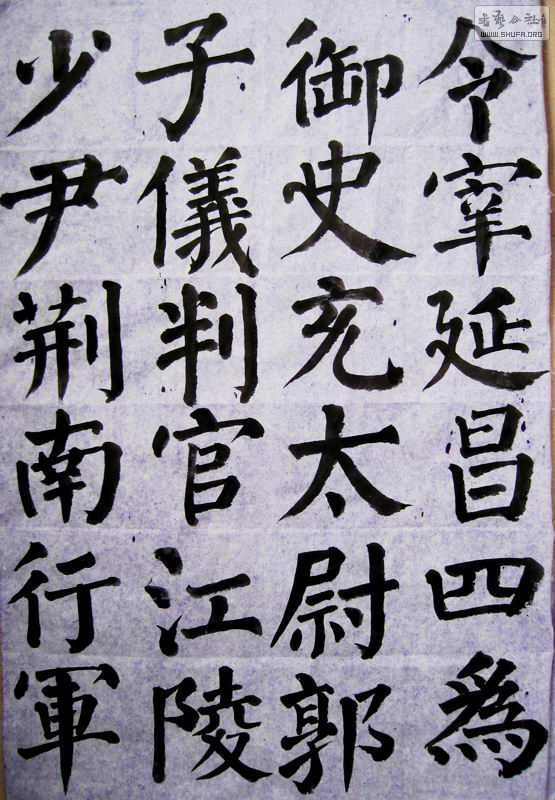 令宰延昌四為
御史充太尉郭
子儀判官江陵
少尹荊南行軍
書藝公社
WWW.SHUFA.ORG